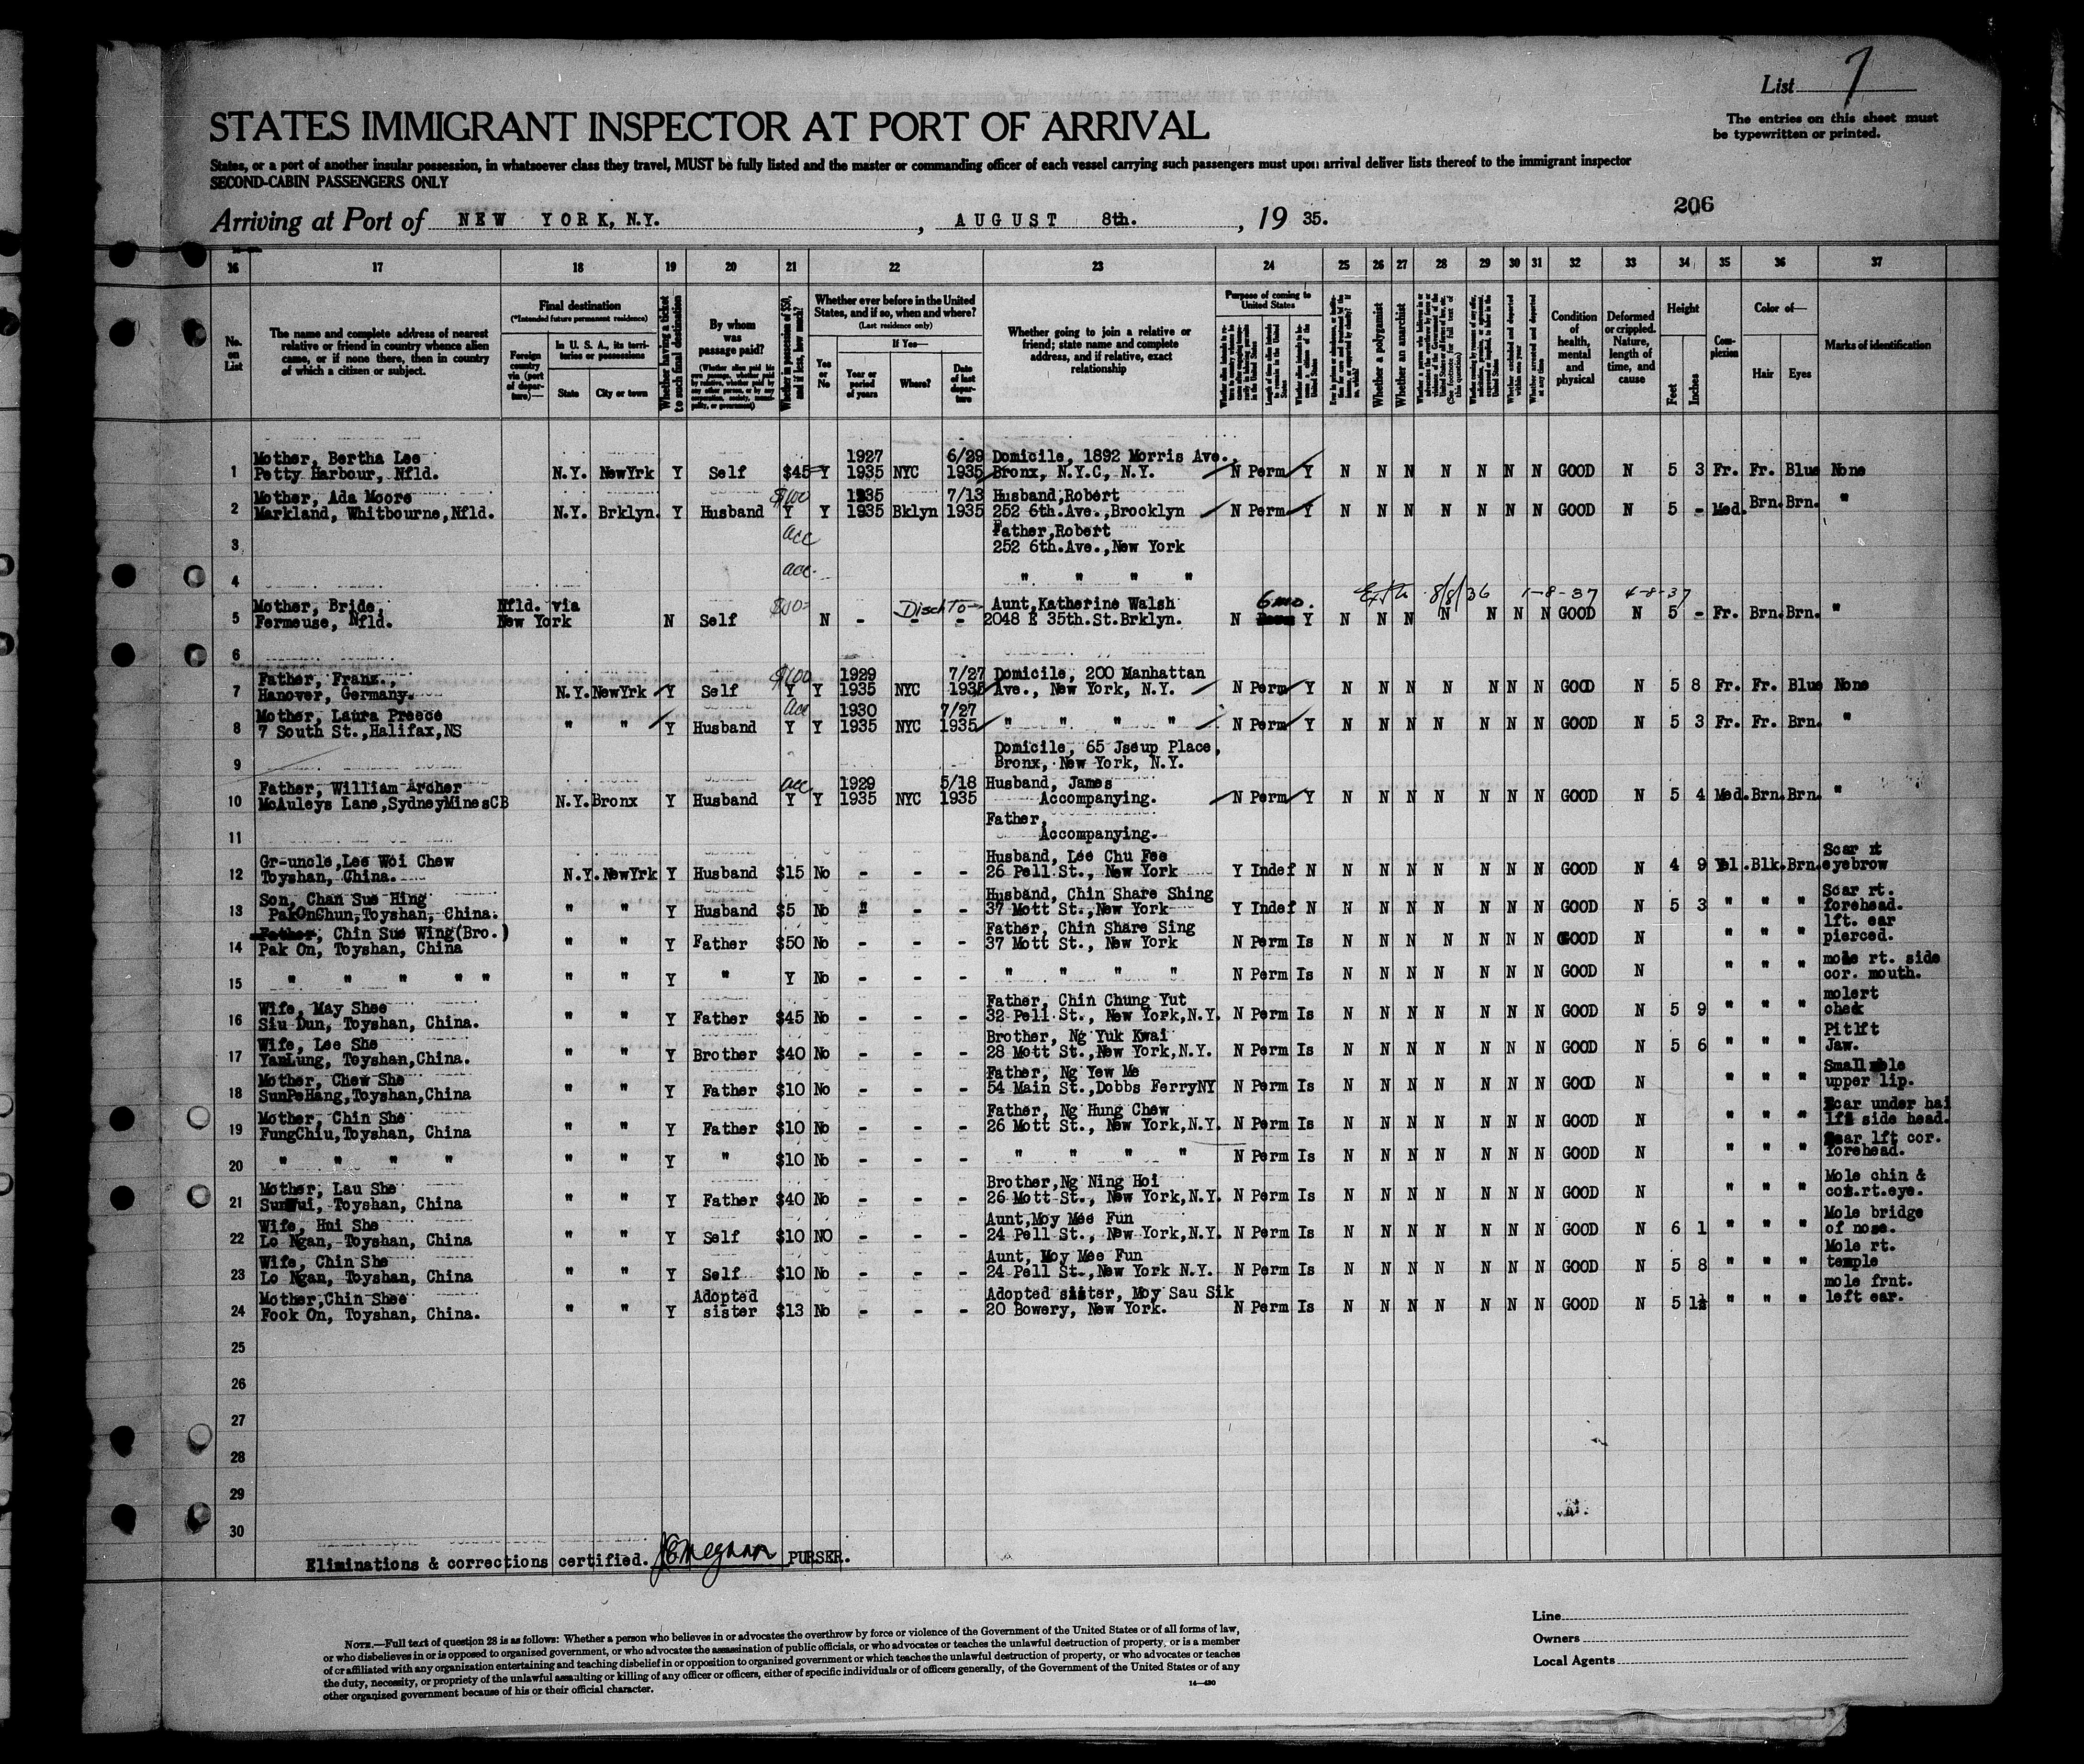 List 7
The entries on this sheet must
be typewritten or printed.
STATES IMMIGRANT INSPECTOR AT PORT OF ARRIVAL
States, or a port of another insular possession, in whatsoever class they travel, MUST be fully listed and the master or commanding officer of each vessel carrying such passengers must upon arrival deliver lists thereof to the immigrant inspector
SECOND-CABIN PASSENGERS ONLY
206
Arriving at Port of NEW YORK, N.Y. , AUGUST 8th. , 19 35.
16 17 18 19 20 21 22 23 24 25 26 27 28 29 30 31 32 33 34 35 36 37
No. on List
The name and complete address of nearest relative or friend in country whence alien came, or if none there, then in country of which a citizen or subject.
Final destination
(*Intended future permanent residence)
Foreign country via (port of departure)—
In U. S. A., its territories or possessions
State
City or town
Whether having a ticket to such final destination
By whom was passage paid?
(Whether alien paid his own passage, whether paid by relative, whether paid by any other person, or by any corporation, society, municipality, or government)
Whether in possession of $50, and if less, how much?
Whether ever before in the United States, and if so, when and where?
(Last residence only)
Yes or No
If Yes—
Year or period of years
Where?
Date of last departure
Whether going to join a relative or friend; state name and complete address, and if relative, exact relationship
Purpose of coming to United States
Length of time alien intends to remain in the United States
Whether a polygamist
Whether an anarchist
Whether arrested and deported at any time
Condition of health, mental and physical
Deformed or crippled. Nature, length of time, and cause
Height
Feet
Inches
Complexion
Color of—
Hair
Eyes
Marks of identification
Mother, Bertha Lee 1927 6/29 Domicile, 1892 Morris Ave.,
1 Petty Harbour, Nfld. N.Y. NewYrk Y Self $45 Y 1935 NYC 1935 Bronx, N.Y.C, N.Y. N Perm Y N N N N N N N GOOD N 5 3 Fr. Fr. Blue None
Mother, Ada Moore $100 1935 7/13 Husband,Robert
2 Markland, Whitbourne,Nfld. N.Y. Brklyn. Y Husband Y Y 1935 Bklyn 1935 252 6th.Ave.,Brooklyn N Perm Y N N N N N N N GOOD N 5 - Med. Brn. Brn. "
acc Father,Robert
3 252 6th.Ave.,New York
acc.
4 " " " "
6 mo. Extn 8/8/36 1-8-37 4-8-37
Mother, Bride, Nfld. via Disch To Aunt,Katherine Walsh
5 Fermeuse, Nfld. New York N Self N - - - 2048 E 35th.St.Brklyn. N Y N N N N N N N GOOD N 5 - Fr. Brn. Brn. "
6
Father, Franz., $100 1929 7/27 Domicile, 200 Manhattan
7 Hanover, Germany. N.Y. NewYrk Y Self Y Y 1935 NYC 1935 Ave., New York, N.Y. N Perm Y N N N N N N N GOOD N 5 8 Fr. Fr. Blue None
Mother, Laura Preece acc 1930 7/27
8 7 South St.,Halifax,NS " " Y Husband Y Y 1935 NYC 1935 " " " " N Perm Y N N N N N N N GOOD N 5 3 Fr. Fr. Brn. "
Domicile, 65 Jseup Place,
9 Bronx, New York, N.Y.
Father, William Archer acc 1929 5/18 Husband, James
10 McAuleys Lane,SydneyMinesCB N.Y. Bronx Y Husband Y Y 1935 NYC 1935 Accompanying. N Perm Y N N N N N N N GOOD N 5 4 Med. Brn. Brn. "
Father,
11 Accompanying.
Gr-uncle,Lee Woi Chew Husband, Lee Chu Fee Scar rt
12 Toyshan, China. N.Y. NewYrk Y Husband $15 No - - - 26 Pell St., New York Y Indef N N N N N N N N GOOD N 4 9 Yel. Blk. Brn. eyebrow
Son, Chan Sue Hing Husband, Chin Share Shing Scar rt.
13 PakOnChun,Toyshan, China. " " Y Husband $5 No - - 37 Mott St.,New York Y Indef N N N N N N N N GOOD N 5 3 " " " forehead.
Father, Chin Sue Wing(Bro.) Father, Chin Share Sing lft. ear
14 Pak On, Toyshan, China " " Y Father $50 No - - - 37 Mott St., New York N Perm Is N N N N N N N GOOD N " " " pierced.
mole rt. side
15 " " " " " " " Y " Y No - - - " " " " N Perm Is N N N N N N N GOOD N " " " cor. mouth.
Wife, May Shee Father, Chin Chung Yut molert
16 Siu Dun, Toyshan, China. " " Y Father $45 No - - - 32 Pell St., New York,N.Y. N Perm Is N N N N N N N GOOD N 5 9 " " " cheek
Wife, Lee She Brother, Ng Yuk Kwai Pitlft
17 YanLung, Toyshan,China. " " Y Brother $40 No - - - 28 Mott St.,New York,N.Y. N Perm Is N N N N N N N GOOD N 5 6 " " " Jaw.
Mother, Chew She Father, Ng Yew Me Small mole
18 SunPeHang,Toyshan,China " " Y Father $10 No - - - 54 Main St.,Dobbs FerryNY N Perm Is N N N N N N N GOOD N " " " upper lip.
Mother, Chin She Father, Ng Hung Chew Scar under hai
19 FungChiu,Toyshan, China " " Y Father $10 No - - - 26 Mott St., New York,N.Y. N Perm Is N N N N N N N GOOD N " " " lft side head.
Scar lft cor.
20 " " " " " " Y " $10 No - - - " " " " N Perm Is N N N N N N N GOOD N " " " forehead.
Mother, Lau She Brother,Ng Ning Hoi Mole chin &
21 SunWui, Toyshan, China " " Y Father $40 No - - - 26 Mott St., New York,N.Y. N Perm Is N N N N N N N GOOD N " " " cor.rt.eye.
Wife, Hui She Aunt,Moy Mee Fun Mole bridge
22 Lo Ngan, Toyshan, China " " Y Self $10 NO - - - 24 Pell St., New York,N.Y. N Perm Is N N N N N N N GOOD N 6 1 " " " of nose.
Wife, Chin She Aunt, Moy Mee Fun Mole rt.
23 Lo Ngan, Toyshan, China " " Y Self $10 No - - - 24 Pell St.,New York N.Y. N Perm Is N N N N N N N GOOD N 5 8 " " " temple
Mother,Chin Shee Adopted Adopted sister, Moy Sau Sik mole frnt.
24 Fook On, Toyshan, China. " " Y sister $13 No - - - 20 Bowery, New York. N Perm Is N N N N N N N GOOD N 5 1½ " " " left ear.
25
26
27
28
29
30
Eliminations & corrections certified. PURSER.
NOTE.—Full text of question 28 is as follows: Whether a person who believes in or advocates the overthrow by force or violence of the Government of the United States or of all forms of law,
or who disbelieves in or is opposed to organized government, or who advocates the assassination of public officials, or who advocates or teaches the unlawful destruction of property, or is a member
of or affiliated with any organization entertaining and teaching disbelief in or opposition to organized government or which teaches the unlawful destruction of property, or who advocates or teaches
the duty, necessity, or propriety of the unlawful assaulting or killing of any officer or officers, either of specific individuals or of officers generally, of the Government of the United States or of any
other organized government because of his or their official character.
14—430
Line
Owners
Local Agents